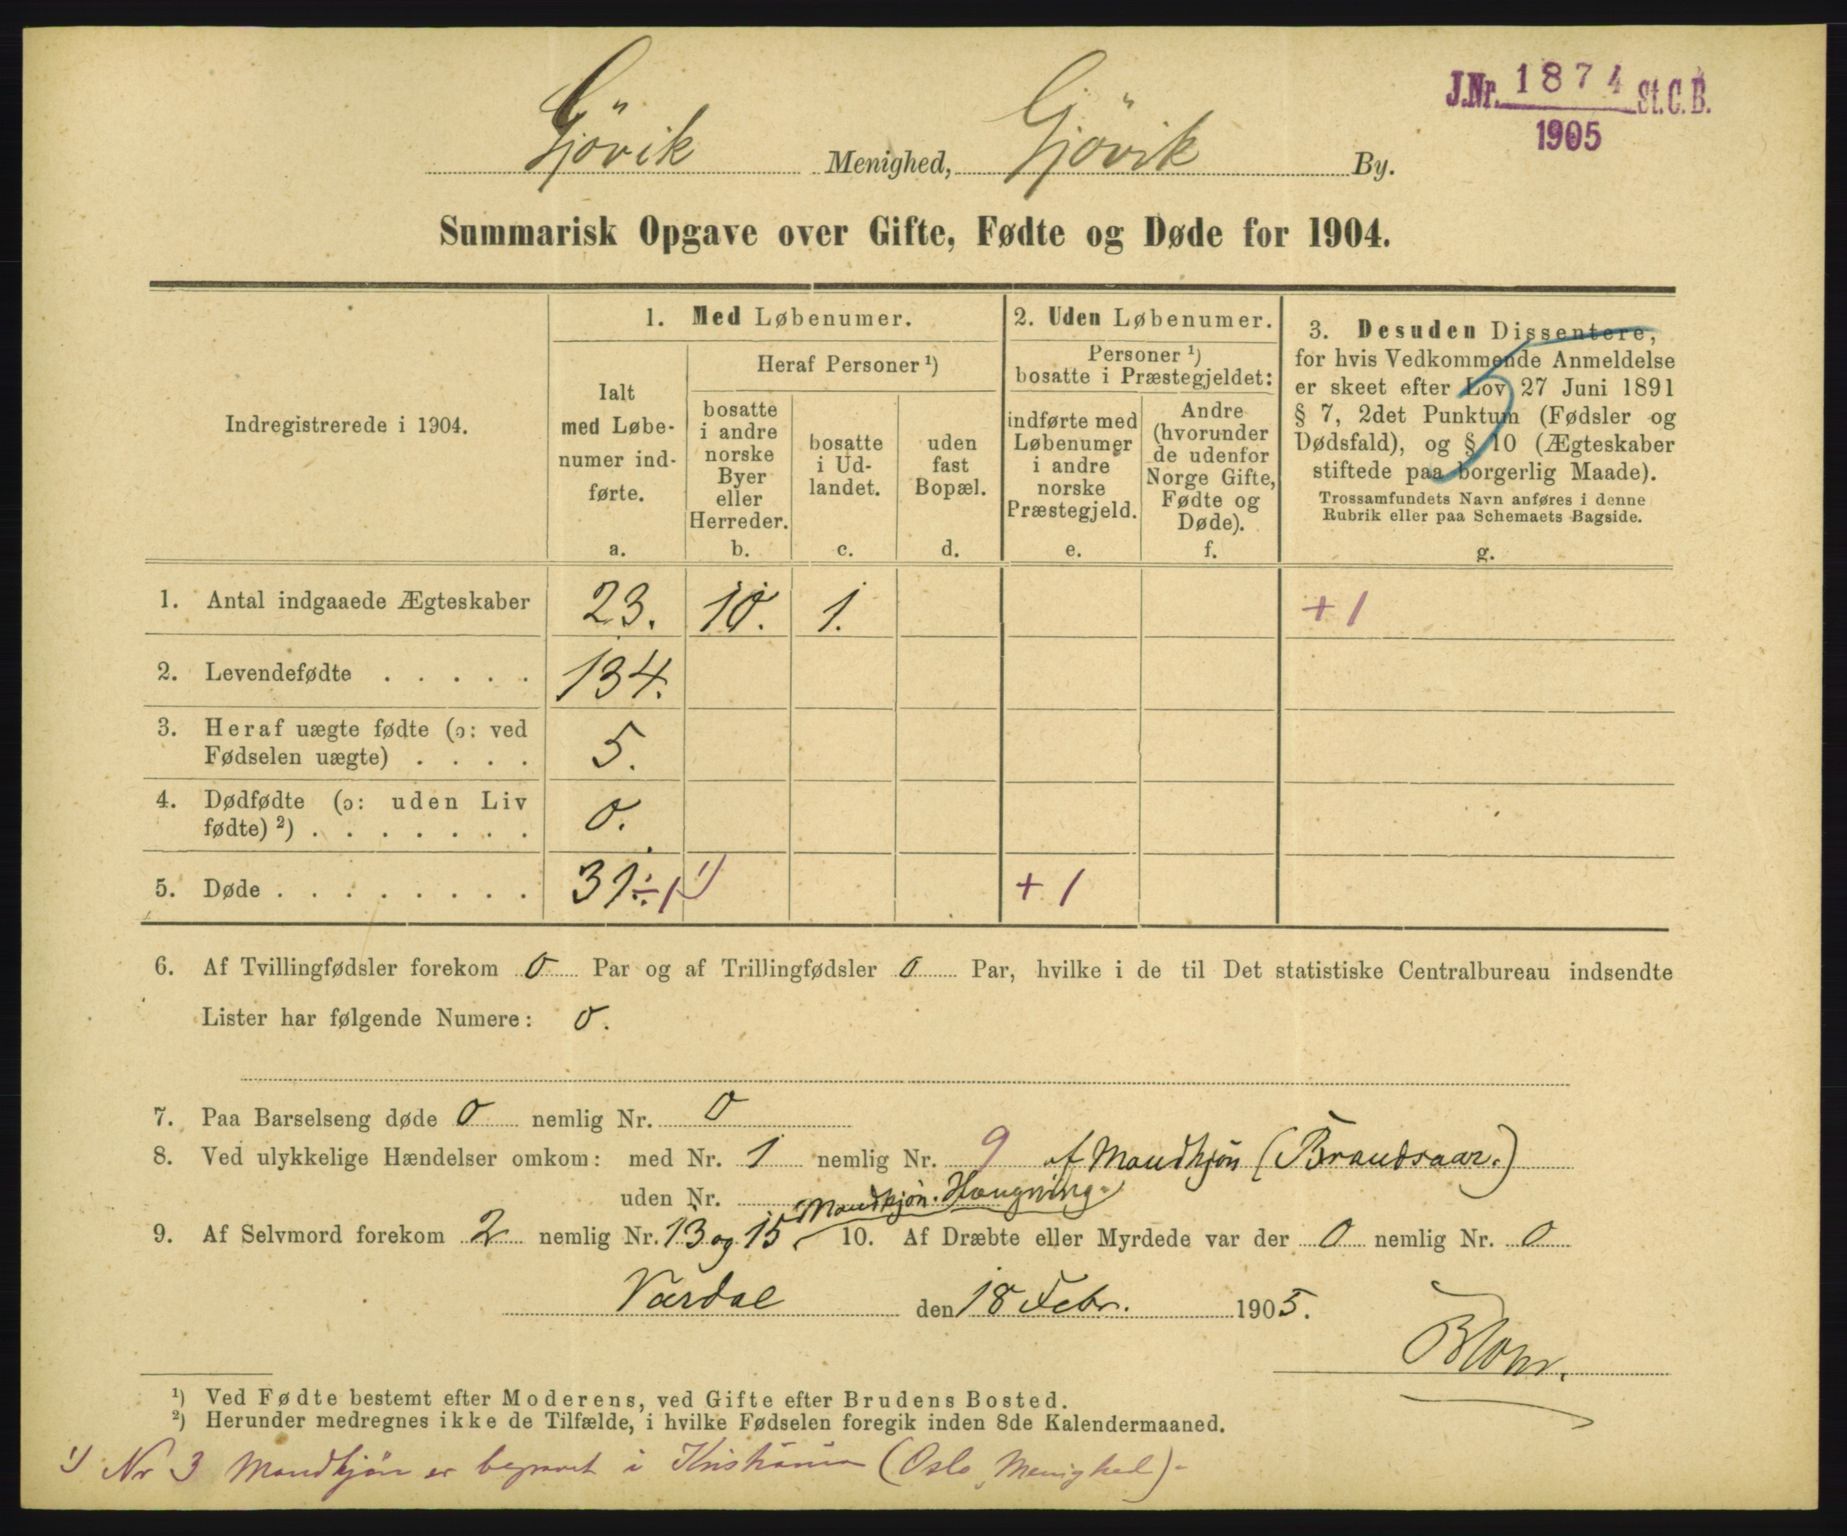 J.Nr. 1874 St. C. B.
1905
Gjövik Menighed, Gjövik By.
Summarisk Opgave over Gifte, Fødte og Døde for 1904.
Indregistrerede i 1904.
1. Med Løbenumer.
Ialt
med Løbe-
numer ind-
førte.
a.
Heraf Personer ¹)
bosatte
i andre
norske
Byer
eller
Herreder.
b.
bosatte
i Ud-
landet.
c.
uden
fast
Bopæl.
d.
2. Uden Løbenumer.
Personer ¹)
bosatte i Præstegjeldet:
indførte med
Løbenumer
i andre
norske
Præstegjeld.
e.
Andre
(hvorunder
de udenfor
Norge Gifte,
Fødte og
Døde).
f.
3. Desuden Dissentere,
for hvis Vedkommende Anmeldelse
er skeet efter Lov 27 Juni 1891
§ 7, 2det Punktum (Fødsler og
Dødsfald), og § 10 (Ægteskaber
stiftede paa borgerlig Maade).
Trossamfundets Navn anføres i denne
Rubrik eller paa Schemaets Bagside.
g.
5
1. Antal indgaaede Ægteskaber 23. 10. 1. + 1
2. Levendefødte . . . . . 134.
3. Heraf uægte fødte (ɔ: ved
Fødselen uægte) . . . . 5.
4. Dødfødte (ɔ: uden Liv
fødte) ²) . . . . . . . 0.
5. Døde . . . . . . . . 31 ÷ 1 ¹) + 1
6. Af Tvillingfødsler forekom 0 Par og af Trillingfødsler 0 Par, hvilke i de til Det statistiske Centralbureau indsendte
Lister har følgende Numere: 0.
7. Paa Barselseng døde 0 nemlig Nr. 0
8. Ved ulykkelige Hændelser omkom: med Nr. 1 nemlig Nr. 9 af Mandkjön (Brandsaar.)
uden Nr.
Mandkjön. Hængning.
9. Af Selvmord forekom 2 nemlig Nr. 13 og 15. 10. Af Dræbte eller Myrdede var der 0 nemlig Nr. 0
Vardal den 18 Febr. 1905.
Blom.
¹) Ved Fødte bestemt efter Moderens, ved Gifte efter Brudens Bosted.
²) Herunder medregnes ikke de Tilfælde, i hvilke Fødselen foregik inden 8de Kalendermaaned.
¹) Nr 3 Mandkjön er begravet i Kristiania (Oslo Menighed).